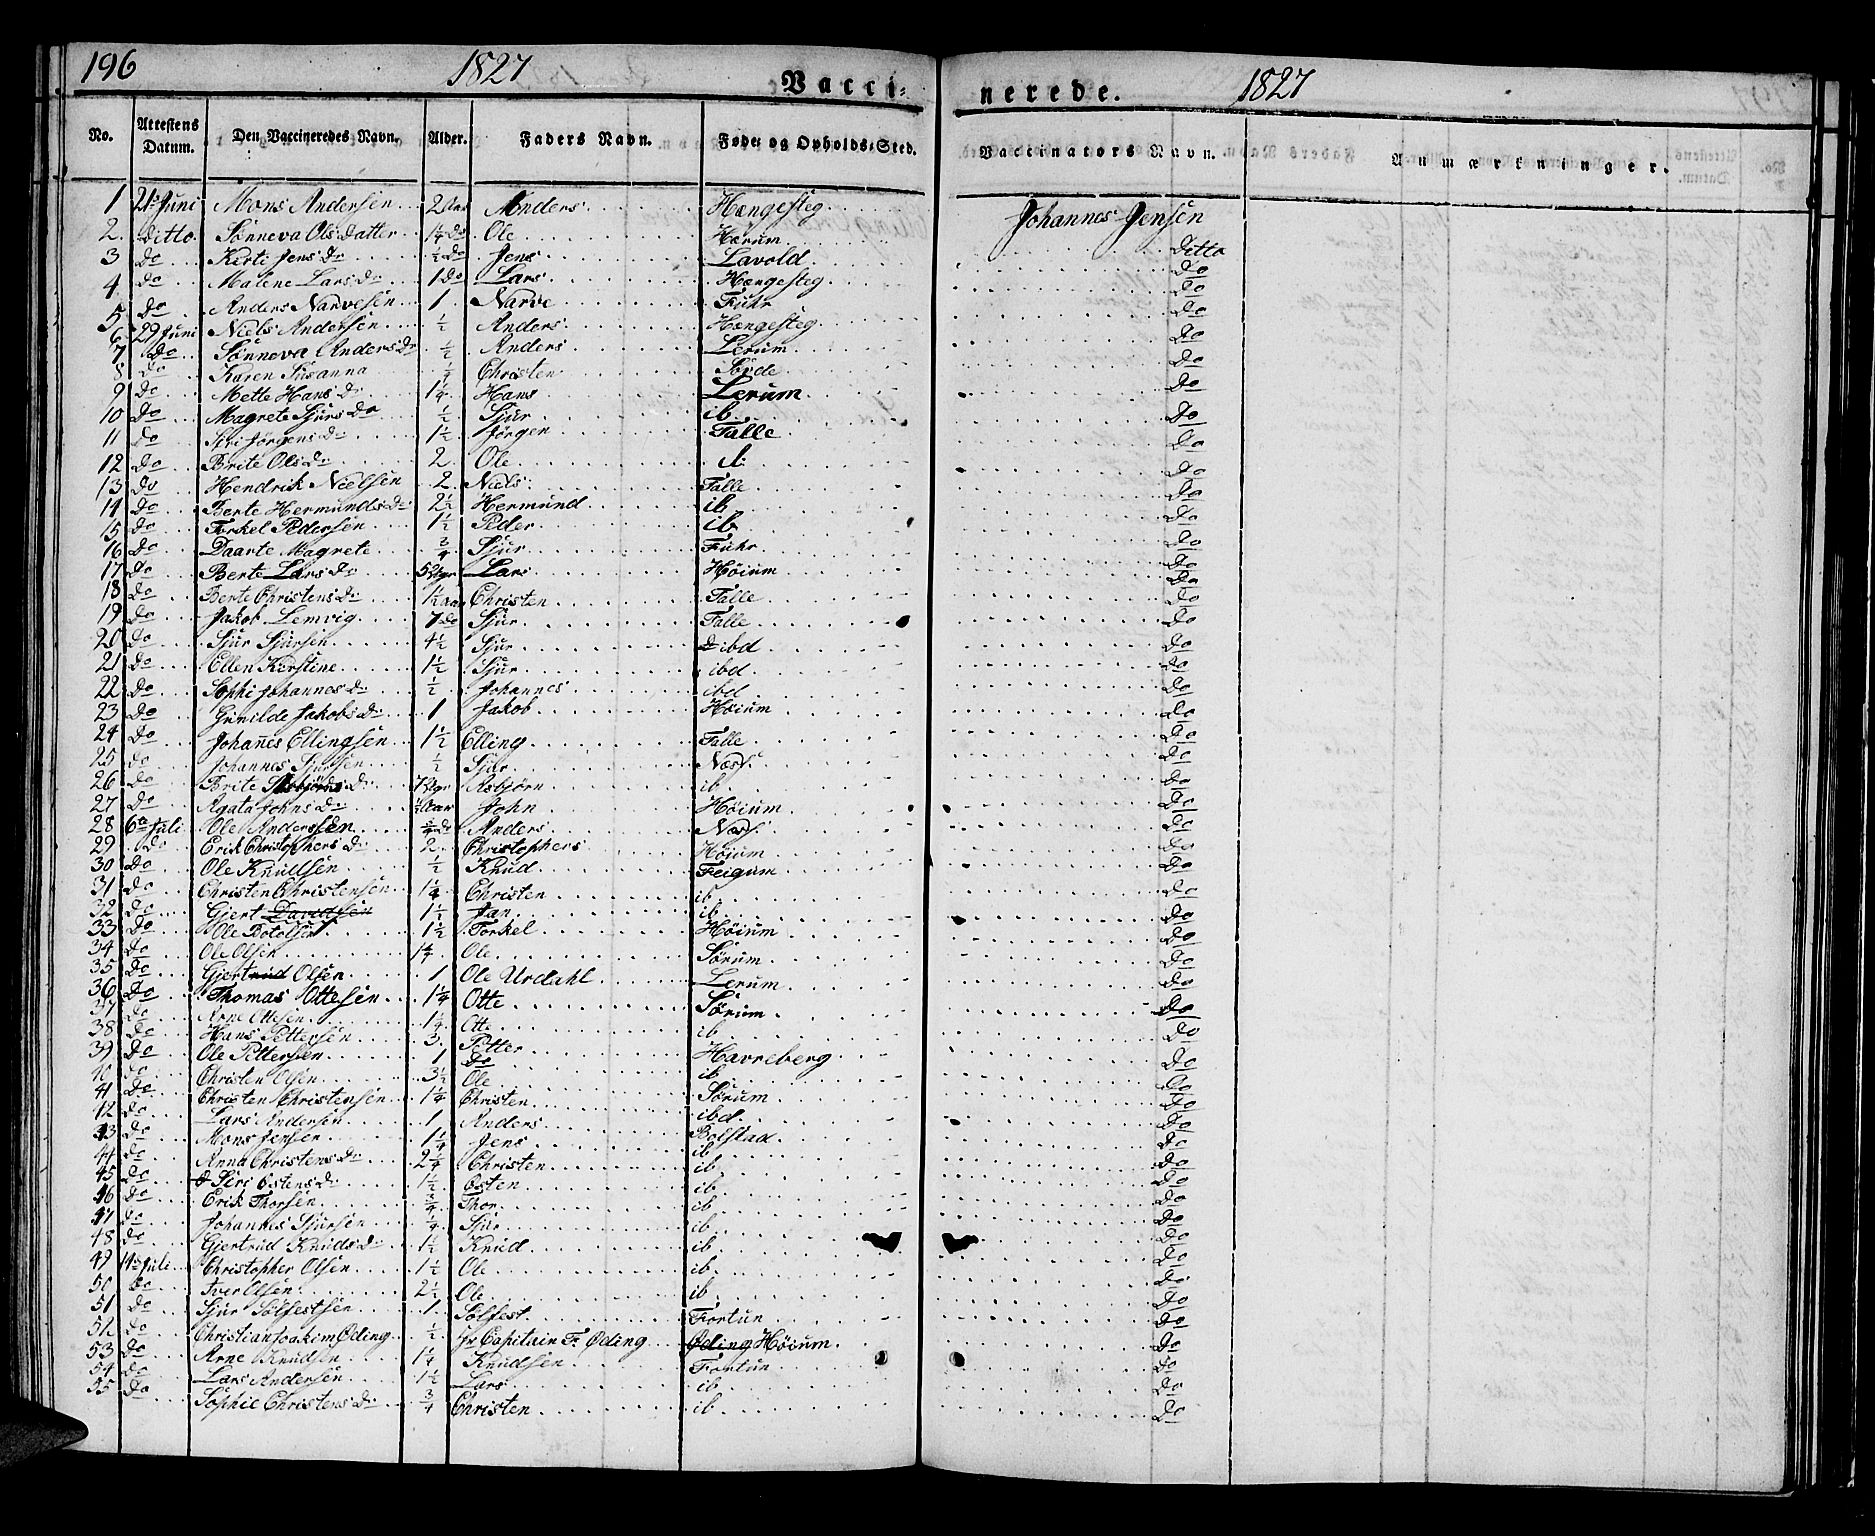 196 1827 Vacci= nerede. 1827
No. Attestens Datum. Den Vaccineredes Navn. Alder. Faders Navn. Føde- og Opholds-Sted. Vaccinators Navn. Anmærkninger.
1 21 Juni Mons Andersen 2 Aar Anders Hængesteg Johannes Jensen
2 Ditto Sønneva Ols Datter 1/4 Do Ole Hærum Ditto
3 Do Kirti Jens Dr 1/2 Do Jens Lavold Do
4 Do Malene Lars Dr 1 Do Lars Hængesteg Do
5 Do Anders Narvesen 1 Narve Fuhr Do
6 29 Juni Niels Andersen 1/2 Anders Hængesteg Do
7 Do Sønneva Anders Dr 1/2 Anders Lerum Do
8 Do Karen Susanna Christen Sørde Do
9 Do Mette Hans Dr 1 1/4 Hans Lerum Do
10 Do Magrete Sjurs Dr 1/2 Sjur ib Do
11 Do Siri Jørgens Dr 1 1/2 Jørgen Talle Do
12 Do Brite Ols Dr 2 Ole ib Do
13 Do Hendrik Nielsen 2 Niels Talle Do
14 Do Berte Hermunds Dr 2 1/2 Hermund ib Do
15 Do Torkel Pedersen 1 1/2 Peder ib Do
16 Do Daarte Magrete 3/4 Sjur Fuhr Do
17 Do Berte Lars Dr 5 Uger Lars Høium Do
18 Do Berte Christens Dr 1 1/2 Aar Christen Talle Do
19 Do Jakob Lemvig 7 Do Sjur Talle Do
20 Do Sjur Sjursen 4 1/2 Sjur ibd Do
21 Do Ellen Kirstine 1 1/2 Sjur ibd Do
22 Do Sophi Johannes Dr 1/2 Johannes ibd Do
23 Do Gunilde Jakobs Dr 1 Jakob Høium Do
24 Do Johanes Ellingsen 1 1/2 Elling Talle Do
25 Do Johannes Sjursen 1/2 Sjur Næss Do
26 Do Brite Asbjørns Dr 7 Uger Asbjørn ib Do
27 Do Agata Johns Dr 1/2 Aar John Høium Do
28 6 Juli Ole Anderssen 3/4 Do Anders Næss Do
29 Do Erik Christophers Dr 2 Christophers Høium Do
30 Do Ole Knudsen 1/2 Knud Feigum Do
31 Do Christen Christensen 1 1/4 Christen ib Do
32 Do Gjert Davidsen 1 1/2 Jan ib Do
33 Do Ole Botolsen 1 1/2 Torkel Høium Do
34 Do Ole Olsen 1 1/4 Ole Sørum Do
35 Do Gjertrud Olsen 1 Ole Urdahl Lerum Do
36 Do Thomas Ottesen 1 1/4 Otte Sørum Do
37 Do Arne Ottesen 1 1/4 Otte ib Do
38 Do Hans Pettersen 3 Petter Havreberg Do
39 Do Ole Pettersen 1 Do ib Do
40 Do Christen Olsen 3 1/2 Ole Sørum Do
41 Do Christen Christensen 1 1/4 Christen ibd Do
42 Do Lars Andersen 1 Anders Bolstad Do
43 Do Mons Jensen 1 1/4 Jens ib Do
44 Do Anna Christens Dr 2 1/4 Christen ib Do
45 Do Siri Ostens Dr 1/2 Osten ib Do
46 Do Erik Thorsen 3/4 Thor ib Do
47 Do Johannes Sjursen 1/4 Sjur ib Do
48 Do Gjertrud Knuds Dr 1 1/2 Knud ib Do
49 14 Juli Christopher Olsen 1 1/2 Ole ib Do
50 Do Iver Olsen 2 1/2 Ole ib Do
51 Do Sjur Sølfestsen 1 Sølfest Fortun Do
52 Do Christian Joakim Øding 1/2 Hr Capitain Fr Øding Øding Høium Do
53 Do Arne Knudsen 1 1/4 Knudsen Fortun Do
54 Do Lars Andersen 1 1/2 Lars ib Do
55 Do Sophie Christens Dr 3/4 Christen ib Do